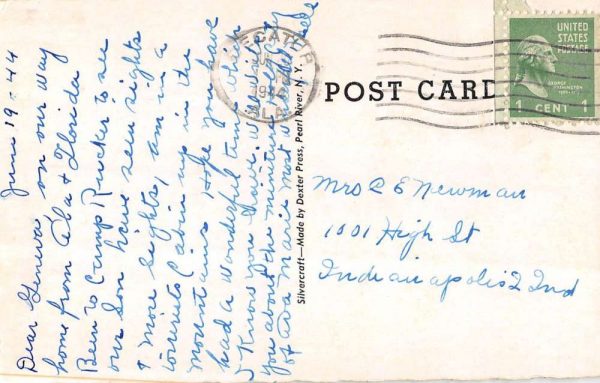 June 19 - 44
Dear Geneva, on our way
home from Ala & Florida
Been to Camp Rucker to see
our Son have seen sights
& more sights, am in a
tourists Cabin up in the
mountains Hope you have
had a wonderful time while
I Know you have. Will write
you about the
of Ava Marie most
DECATUR
1944
ALA.
POST CARD
UNITED
STATES
POSTAGE
GEORGE
WASHINGTON
1 CENT 1
Silvercraft—Made by Dexter Press, Pearl River, N. Y.
Mrs C E Newman
1001 High St
Indianapolis 2 Ind